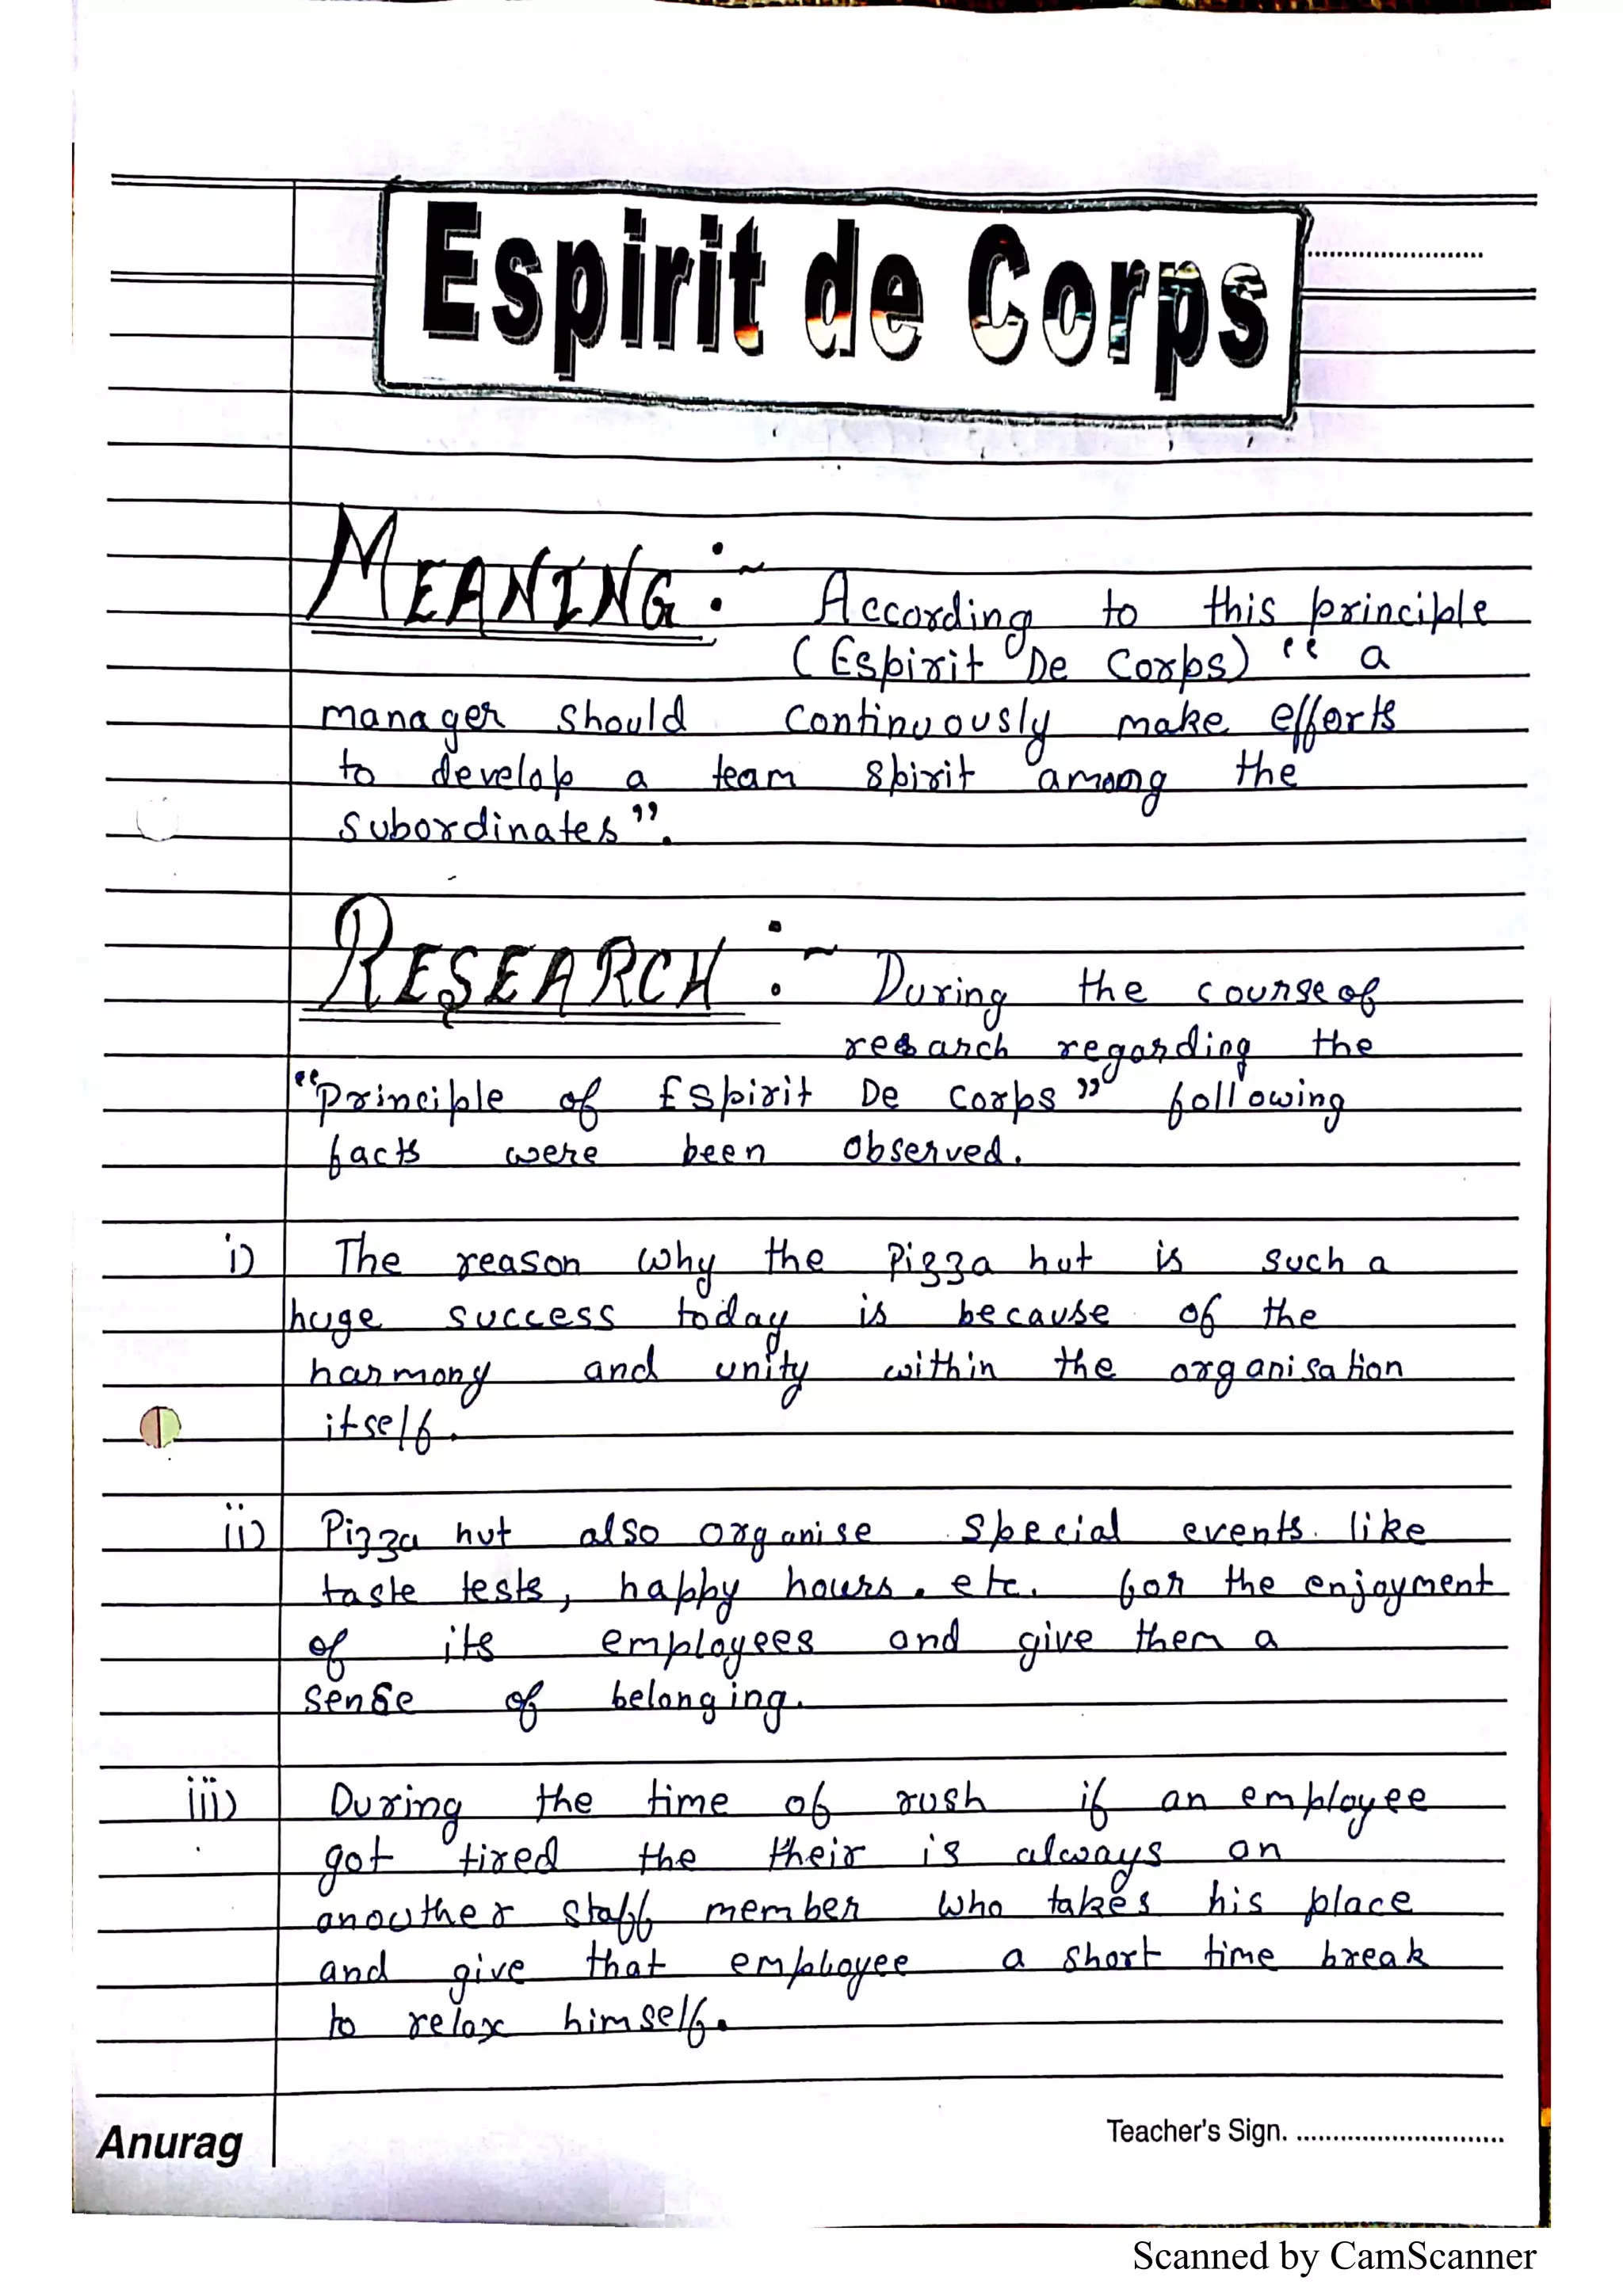 Espirit de Corps
MEANING :~ According to this principle
(Espirit De Corps) " a
manager should continuously make efforts
to develop a team spirit among the
subordinates".
RESEARCH :~ During the course of
research regarding the
"principle of Espirit De Corps" following
facts were been observed.
i) The reason why the Pizza hut is such a
huge success today is because of the
harmony and unity within the organisation
itself.
ii) Pizza hut also organise special events like
taste tests, happy hours. etc. for the enjoyment
of its employees and give them a
sense of belonging.
iii) During the time of rush if an employee
got tired the their is always an
anouther staff member who takes his place
and give that employee a short time break
to relax himself.
Anurag
Teacher's Sign. ............................
Scanned by CamScanner